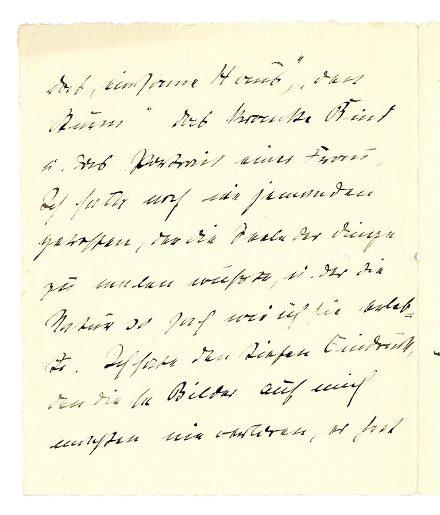 das „einsame Haus", „den
Sturm" das kranke Kind
u. das Portrait einer Frau.
Ich hatte noch nie jemanden
getroffen, der die Seele der Dinge
zu malen wußte, u. der die
Natur so sah wie ich sie erleb-
te. Ich habe den tiefen Eindruck,
den diese Bilder auf mich
machten nie verloren, er hat